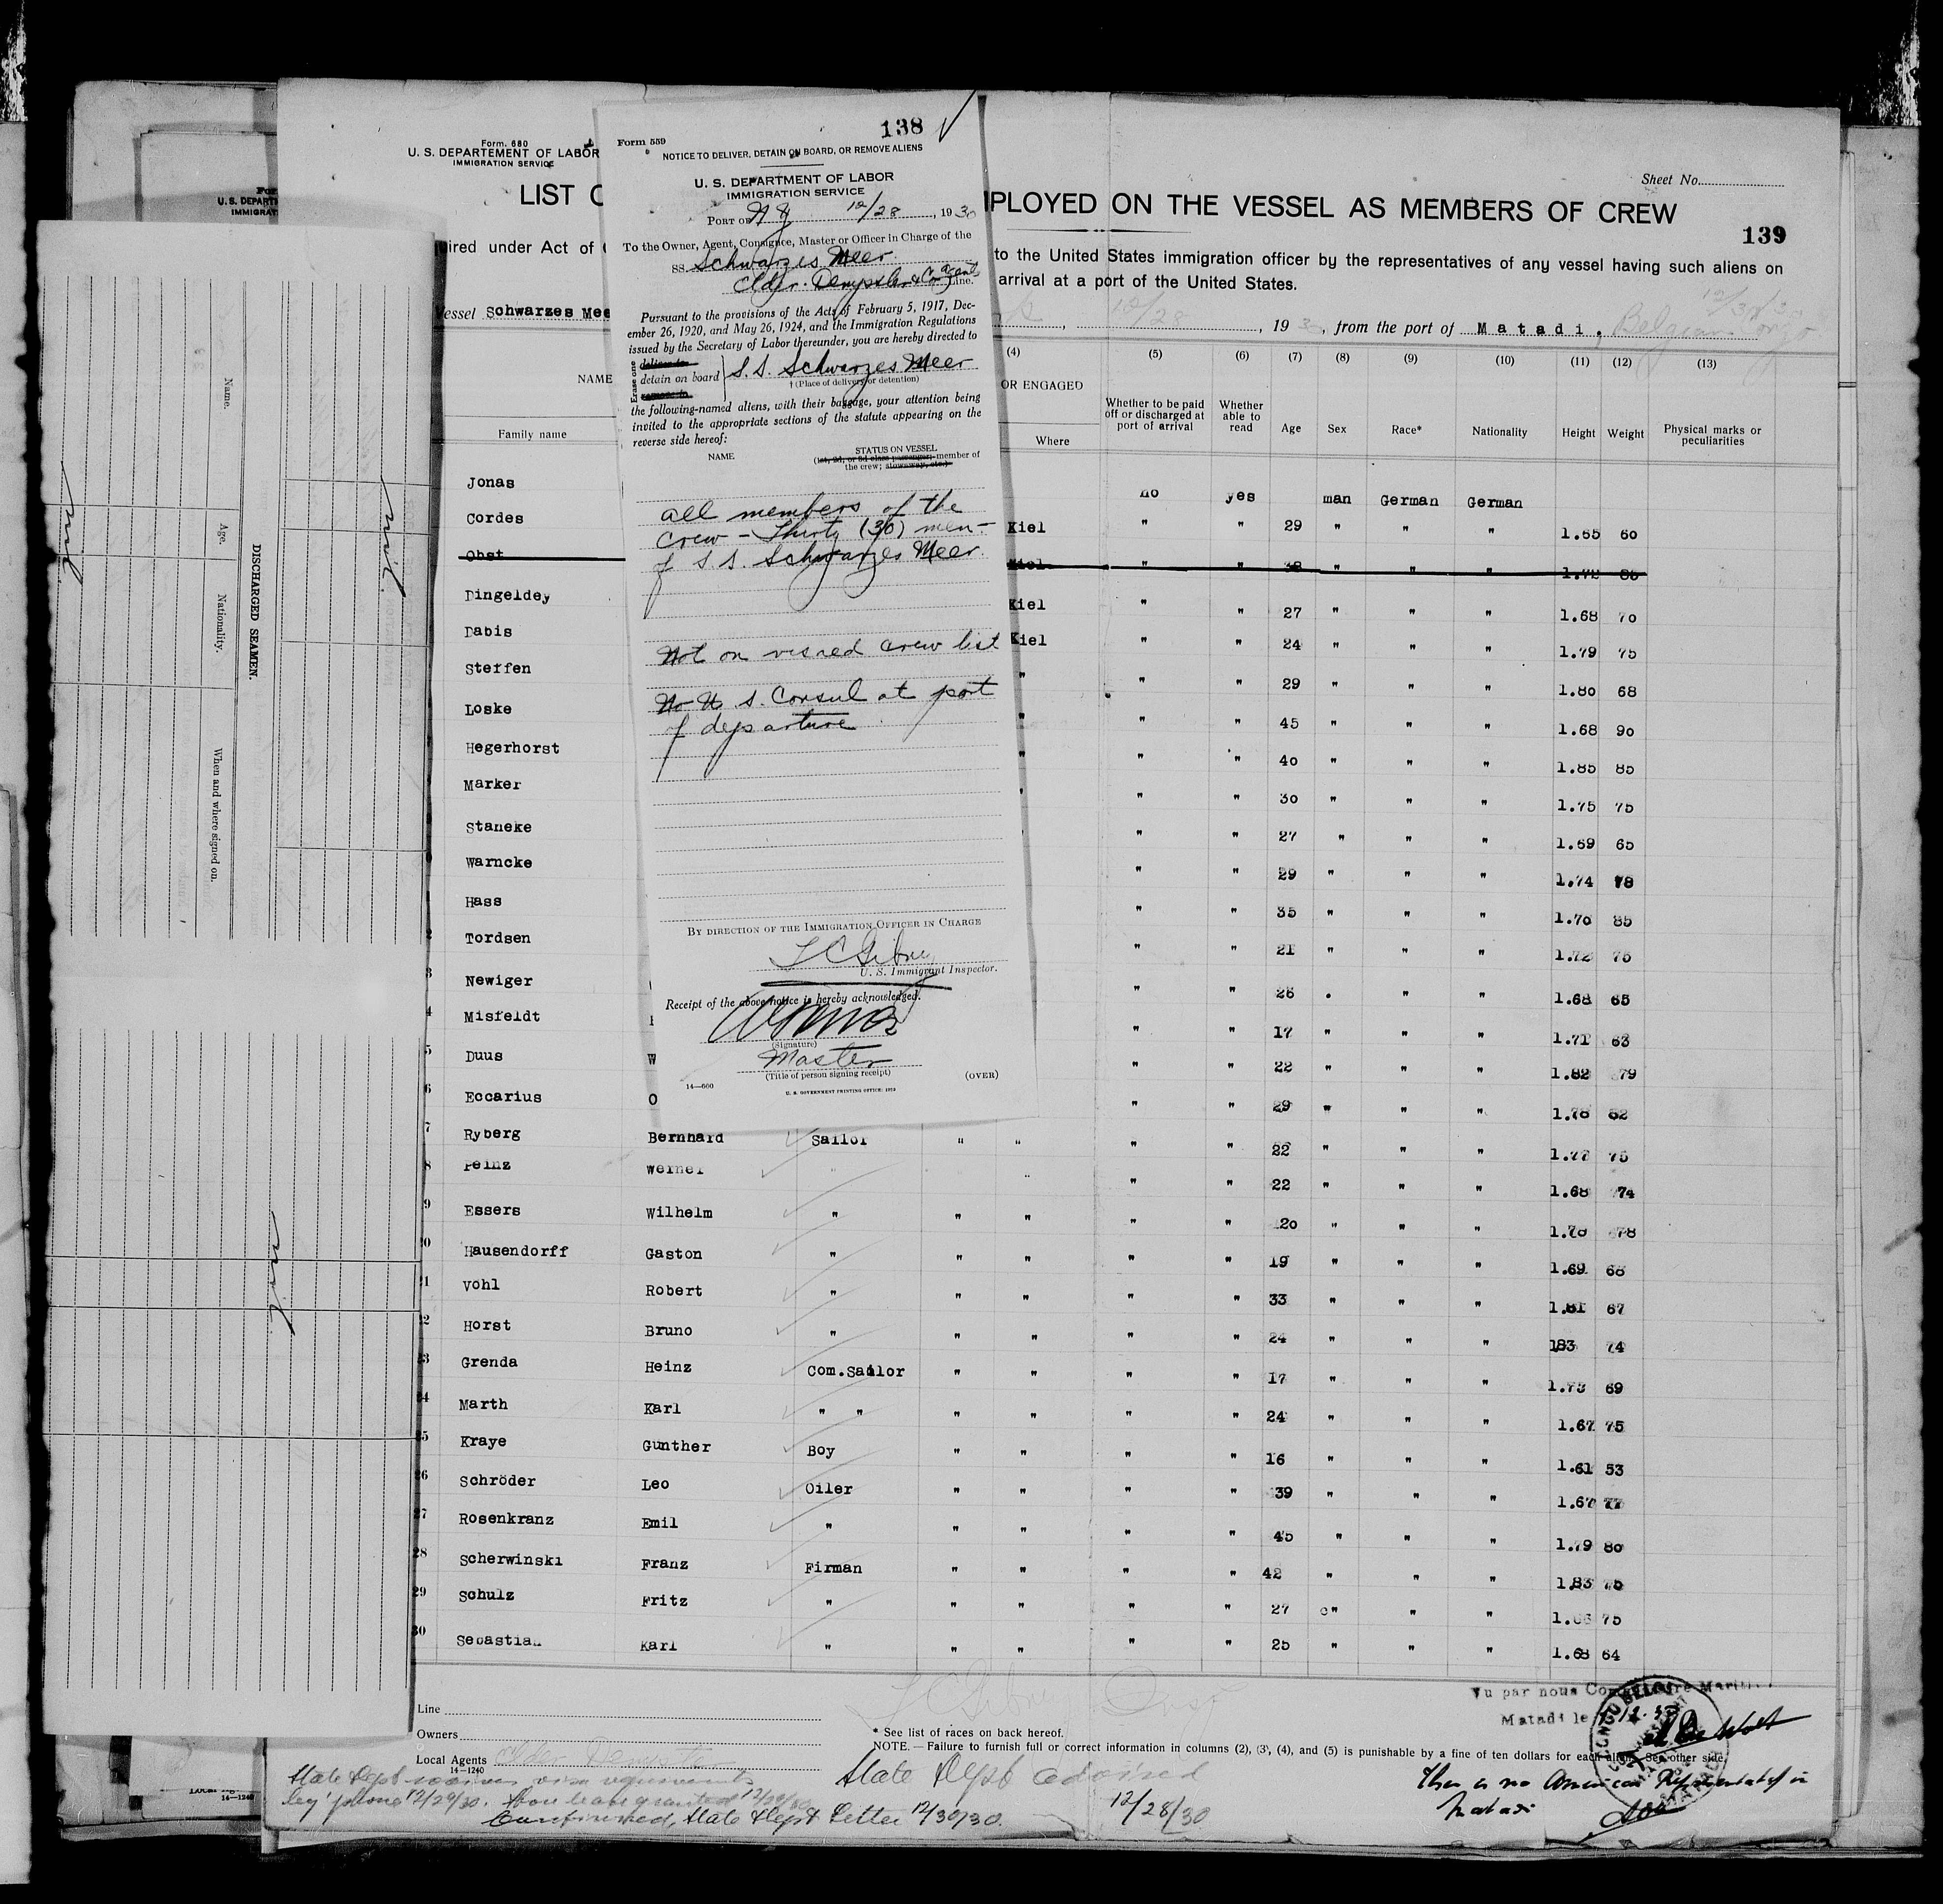 138
Form 559
NOTICE TO DELIVER, DETAIN ON BOARD, OR REMOVE ALIENS
U. S. DEPARTMENT OF LABOR
IMMIGRATION SERVICE
PORT OF N Y 12/28, 1930
To the Owner, Agent, Consignee, Master or Officer in Charge of the
SS. Schwarzes Meer
Elder Dempster & Co Agents Line.
Pursuant to the provisions of the Acts of February 5, 1917, Dec-
ember 26, 1920, and May 26, 1924, and the Immigration Regulations
issued by the Secretary of Labor thereunder, you are hereby directed to
Erase one
deliver to
detain on board S. S. Schwarzes Meer
remove to
† (Place of delivery or detention)
the following-named aliens, with their baggage, your attention being
invited to the appropriate sections of the statute appearing on the
reverse side hereof:
NAME
STATUS ON VESSEL
(1st, 2d, or 3d class passenger; member of
the crew; stowaway, etc.)
all members of the
crew - Thirty (30) men -
of S. S. Schwarzes Meer.
Not on visaed crew list
No U. S. Consul at port
of departure
BY DIRECTION OF THE IMMIGRATION OFFICER IN CHARGE
U. S. Immigrant Inspector.
Receipt of the above notice is hereby acknowledged.
(Signature)
Master
(Title of person signing receipt)
14—660
(OVER)
U. S. GOVERNMENT PRINTING OFFICE: 
Form. 680
U. S. DEPARTEMENT OF LABOR
IMMIGRATION SERVICE
Sheet No.
LIST O
PLOYED ON THE VESSEL AS MEMBERS OF CREW
139
ired under Act of
to the United States immigration officer by the representatives of any vessel having such aliens on
arrival at a port of the United States.
essel Schwarzes Mee
12/28, 1930, from the port of Matadi, Belgian
(4) (5) (6) (7) (8) (9) (10) (11) (12) (13)
NAME
OR ENGAGED
Family name
Where
Whether to be paid off or discharged at port of arrival
Whether able to read
Age
Sex
Race*
Nationality
Height
Weight
Physical marks or peculiarities
Jonas no yes man German German
Cordes Kiel " " 29 " " " 1.65 60
Obst Kiel " " 38 " " " 1.72 85
Dingeldey Kiel " " 27 " " " 1.68 70
Dabis Kiel " " 24 " " " 1.79 75
Steffen " " " 29 " " " 1.80 68
Loske " " " 45 " " " 1.68 90
Hegerhorst " " " 40 " " " 1.85 85
Marker " " " 30 " " " 1.75 75
Staneke " " 27 " " " 1.69 65
Warncke " " 29 " " " 1.74 78
Hass " " 35 " " " 1.70 85
Tordsen " " 21 " " " 1.72 75
Newiger " " 26 . " " 1.68 65
Misfeldt " " 17 " " " 1.71 63
Duus W " " 22 " " " 1.82 79
Eccarius O " " 29 " " " 1.78 62
Ryberg Bernhard Sailor " " " " 22 " " " 1.77 75
Peinz Werner " " " " " 22 " " " 1.68 74
Essers Wilhelm " " " " " 20 " " " 1.78 78
20 Hausendorff Gaston " " " " " 19 " " " 1.69 68
Vohl Robert " " " " " 33 " " " 1.81 67
Horst Bruno " " " " " 24 " " " 183 74
Grenda Heinz Com.Sailor " " " " 17 " " " 1.73 69
Marth Karl " " " " " " 24 " " " 1.67 75
Kraye Gunther Boy " " " " 16 " " " 1.61 53
26 Schröder Leo Oiler " " " " 39 " " " 1.67 77
27 Rosenkranz Emil " " " " " 45 " " " 1.79 80
28 Scherwinski Franz Firman " " " " 42 " " " 1.83 75
29 Schulz Fritz " " " " " 27 " " " 75
30 Sebastian Karl " " " " " 25 " " " 1.68 64
Line
Owners
Local Agents Elder Dempster
14—1240
* See list of races on back hereof.
NOTE. — Failure to furnish full or correct information in columns (2), (3), (4), and (5) is punishable by a fine of ten dollars for each alien. See other side.
Vu par nous Commissaire Marit
Matadi le
CONGO BELGE
There is no American Representative in
Matadi
State Dept advised
12/28/30
State Dept waives visa requirements
by 'phone 12/29/30. Shore leave granted 12/29/30
Confirmed, State Dept Letter 12/30/30.
DISCHARGED SEAMEN.
Name.
Age.
Nationality.
When and where signed on.
U. S. DEPART
IMMIGRAT
14—1240